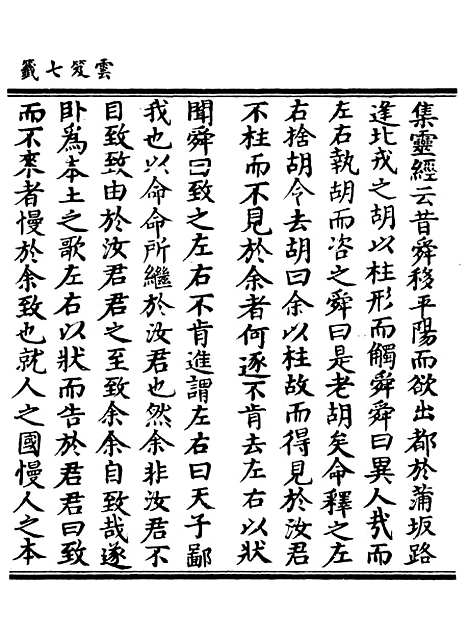 雲笈七籤
集靈經云昔舜移平陽而欲出都於蒲坂路
逢北戎之胡以柱形而觸舜舜曰異人哉而
左右執胡而咨之舜曰是老胡矣命釋之左
右捨胡令去胡曰余以柱故而得見於汝君
不柱而不見於余者何逐不肯去左右以狀
聞舜曰致之左右不肯進謂左右曰天子鄙
我也以命命所繼於汝君也然余非汝君不
自致致由於汝君君之至致余余自致哉遂
卧為本土之歌左右以狀而告於君君曰致
而不來者慢於余致也就人之國慢人之本